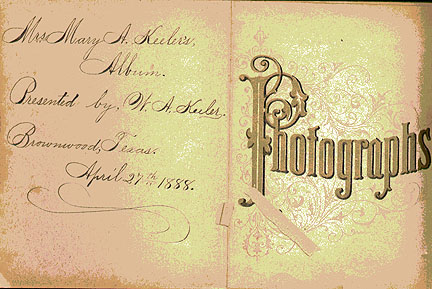 Mrs Mary A. Keeler's,
Album.
Presented by, W. A. Keeler.
Brownwood, Texas.
April 27th 1888.
Photographs